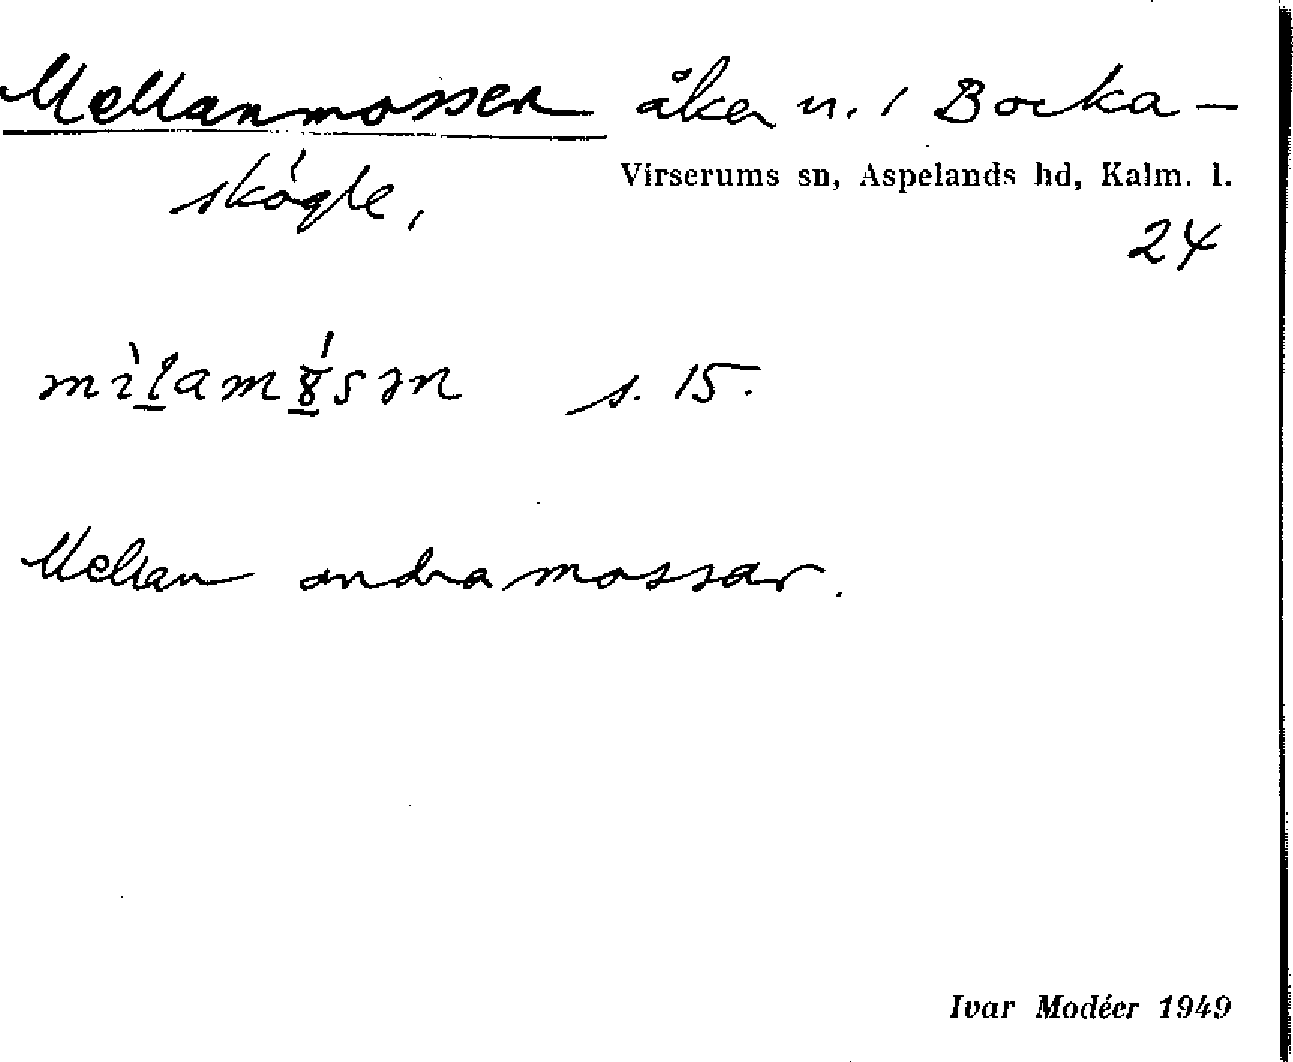 Mellanmossen åker n. i Bocka-
skógle,
Virserums sn, Aspelands hd, Kalm. l.
24
s. 15.
Mellan andra mossar.
Ivar Modéer 1949